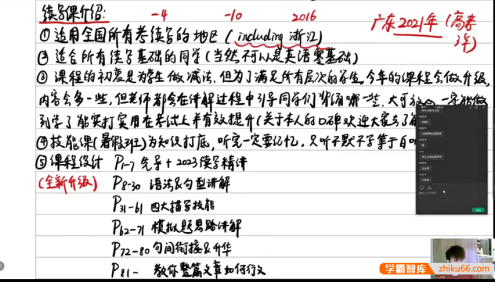 续写课介绍: -4 -10 2016
广东2021年(高考
①适用全国所有考续写的地区(including 浙江)
②适合所有续写基础的同学(当然,可以是英语零基础)
③课程的初衷是为学生做减法,但为了满足所有层次的学生,今年的课程会做升级,
内容会多一些,但老师都会在讲解过程中引导同学们
到学了能实打实用在考试上并有效提升(关于本人的
④技能课(暑假班)为知识打底,听完一定要记忆,只听不默不等于白听
⑤课程设计 P1-7 先导+2023续写精讲
(全新升级) P8-30 语法&句型讲解
P31-61 四大描写技能
P62-71 模拟题思路讲解
P72-80 句间衔接&升华
P81- 教你整篇文章如何行文
学霸智库
zhiku66.com